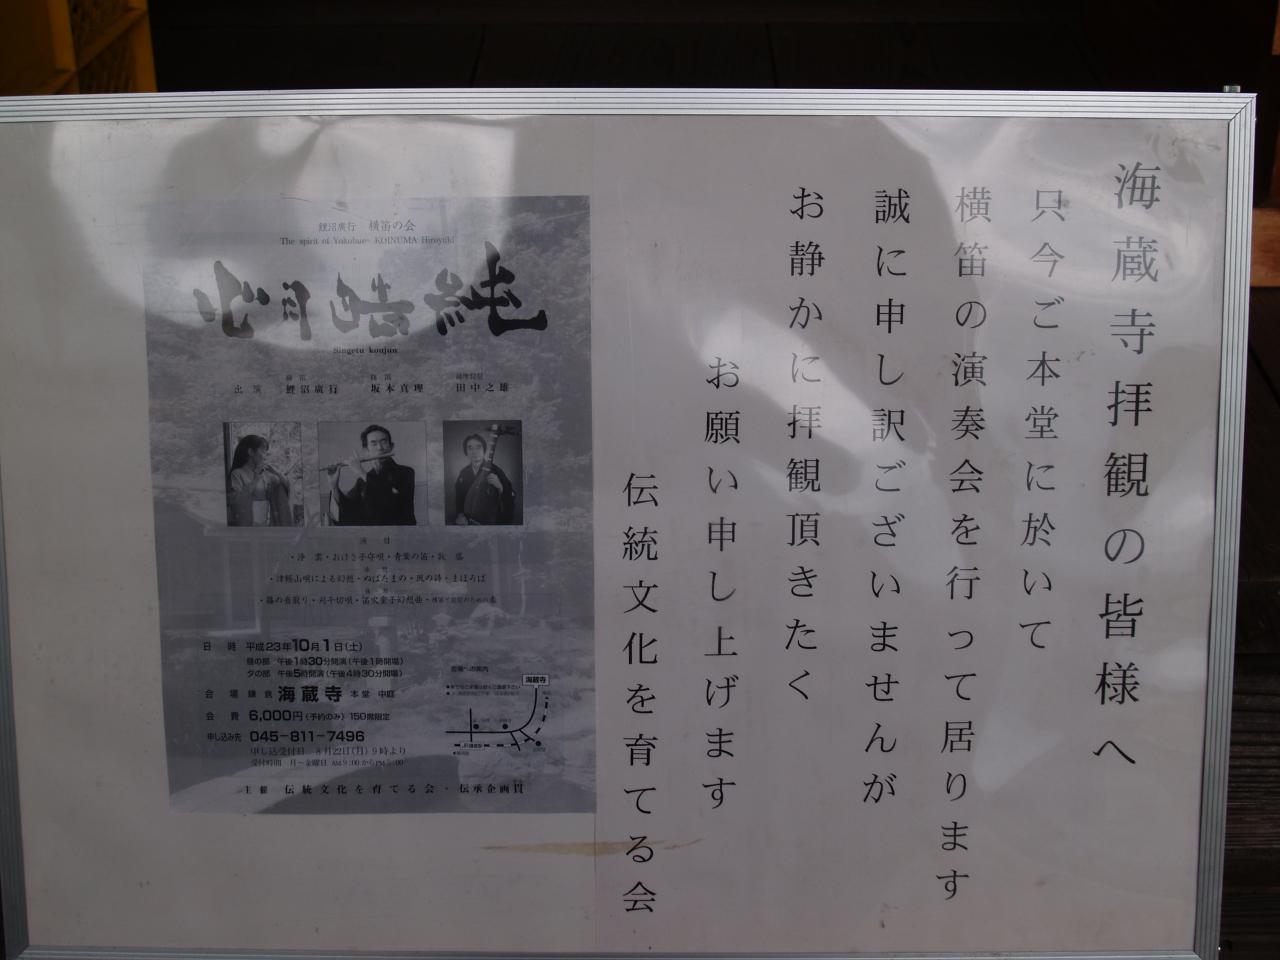 海蔵寺拝観の皆様へ
只今ご本堂に於いて
横笛の演奏会を行って居ります
誠に申し訳ございませんが
お静かに拝観頂きたく
お願い申し上げます
伝統文化を育てる会
鯉沼廣行 横笛の会
The spirit of Yokobue- KOINUMA Hiroyuki
心月皓純
Singetu koujun
出演 鯉沼廣行 坂本真理 田中之雄
演目
・津軽山唄による幻想・ぬばたまの・風の詩・まほろば
日時 平成23年10月1日(土)
昼の部 午後1時30分開演(午後1時開場)
夕の部 午後5時開演(午後4時30分開場)
会場 鎌倉 海蔵寺 本堂 中庭
会費 6,000円(予約のみ) 150席限定
申し込み先 045-811-7496
申し込受付日 8月22日(月)9時より
受付時間 月～金曜日 AM9:00からPM5:00
主催 伝統文化を育てる会・伝承企画貫
会場への案内
海蔵寺